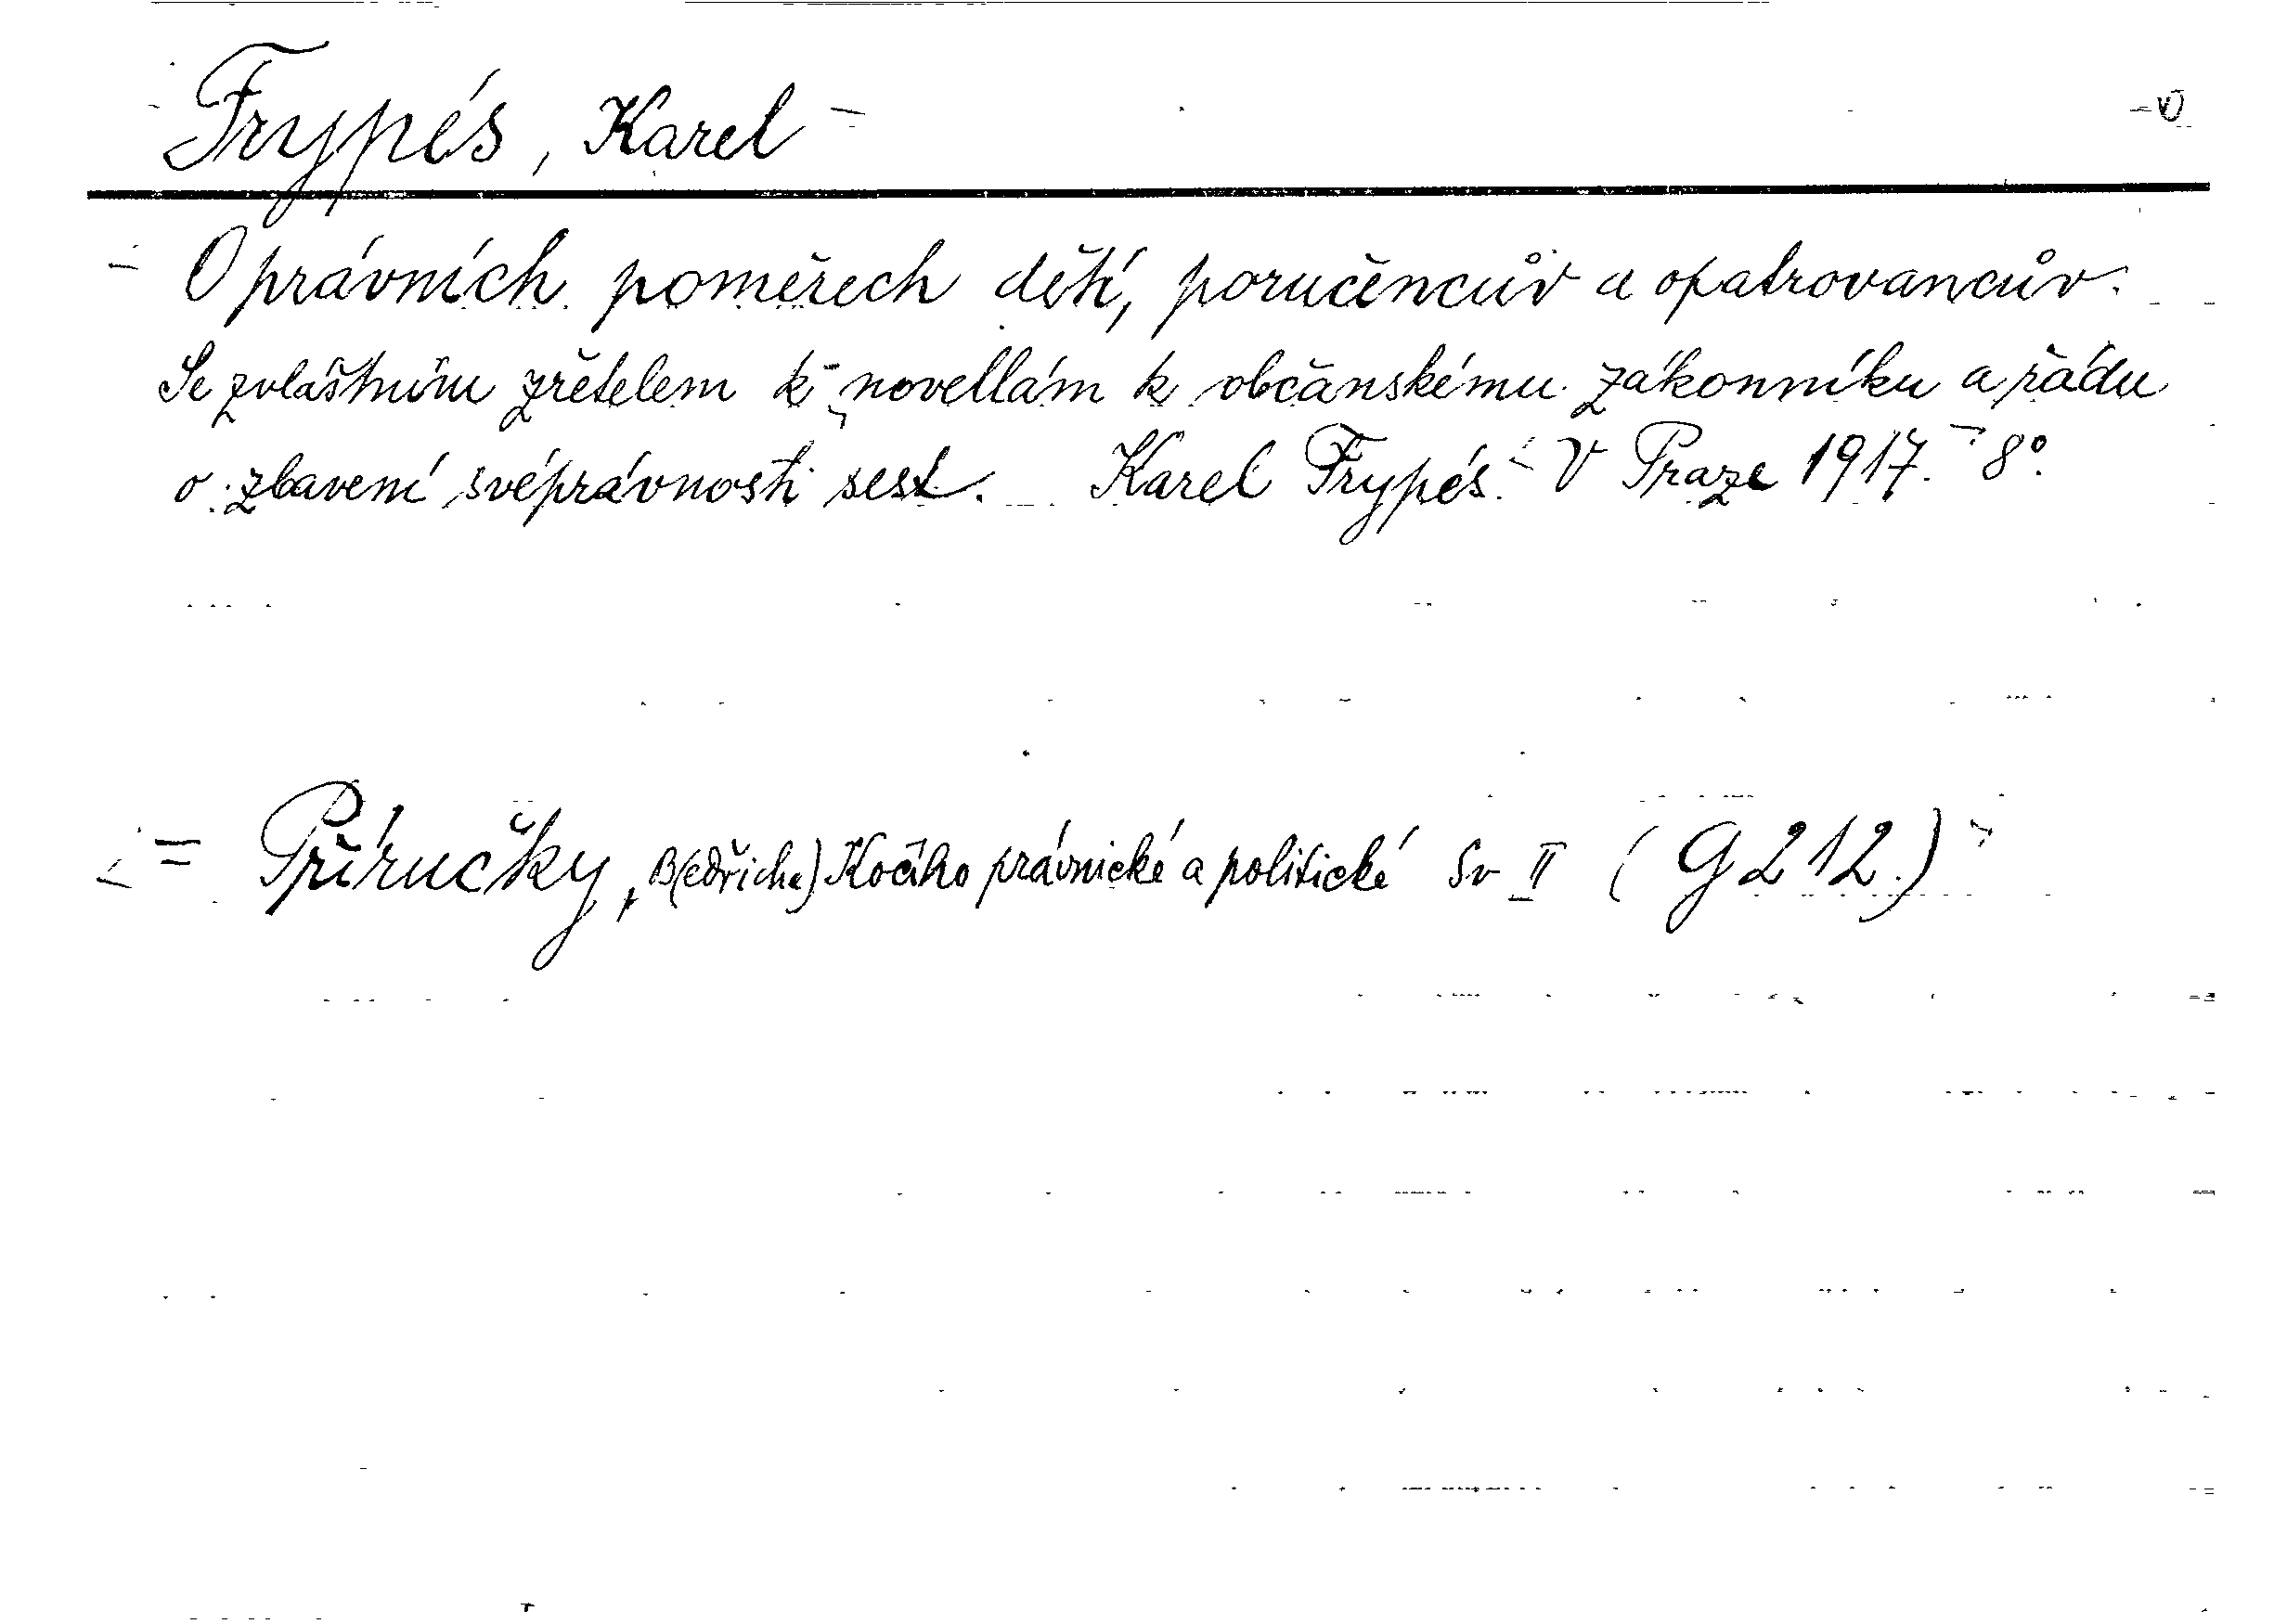 Frypés, Karel
O právních poměrech dětí, poručencův a opatrovancův.
Se zvláštním zřetelem k novellám k občanskému zákonníku a řádu
o zbavení svéprávnosti sest. Karel Frypés. V Praze 1917. 8°.
= Příručky, B(edřicha) Kočího právnické a politické Sv II (G 212.)